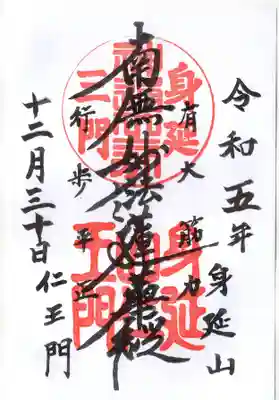 令和五年 身延山
身延
有大筋力
身延
南無妙法蓮華経
三門
行歩平正
王門
十二月三十日 仁王門